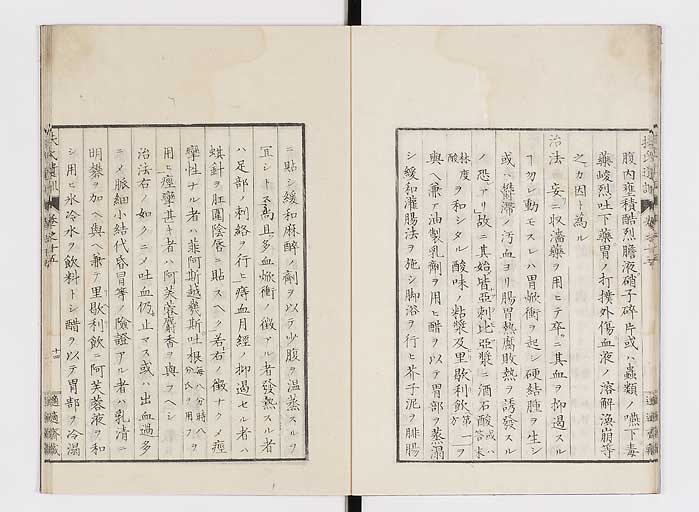 腹内壅積酷烈膽液硝子碎片或ハ蟲類ノ嚥下毒
藥峻烈吐下藥胃ノ打撲外傷血液ノ溶解渙崩等
之カ因ト為ル
治法 妄ニ収濇藥ヲ用ヒテ卒ニ其血ヲ抑遏スル
ヿ勿レ動モスレハ胃焮衝ヲ起シ硬結腫ヲ生シ
或ハ鬱滞ノ汚血ヨリ腸胃熱腐敗熱ヲ誘發スル
ノ恐アリ故ニ其始皆亞刺比亞漿ニ酒石酸或ハ答末
林度酸ヲ和シタル酸味ノ粘漿及里歇利飲方第一ヲ
與ヘ兼テ油製乳劑ヲ用ヒ醋ヲ以テ胃部ヲ蒸溻
シ緩和灌腸法ヲ施シ脚浴ヲ行ヒ芥子泥ヲ腓腸
ニ貼シ緩和麻酔ノ劑ヲ以テ少腹ヲ温蒸スルヲ
宜シトス為且多血焮衝ノ徴アル者發熱スル者
ハ足部ノ刺絡ヲ行ヒ痔血月經ノ抑遏セル者ハ
蜞針ヲ肛圍陰唇ニ貼スヘク若右ノ徴ナク痙
攣性ナル者ハ菲阿斯越幾斯吐根毎八分時八分氏ヲ用フヲ
用ヒ痙攣甚キ者ハ阿芙蓉麝香ヲ與ヘシ
治法右ノ如クニメ吐血仍止マス或ハ出血過多
ニメ脈細小結代昏冒等ノ險證アル者ハ乳清ニ
明礬ヲ加ヘ與ヘ兼テ里歇利飲ニ阿芙蓉液ヲ和
シ用ヒ氷冷水ヲ飲料トシ醋ヲ以テ胃部ヲ冷溻
扶氏遺訓 卷之十五 十四 適適齋藏